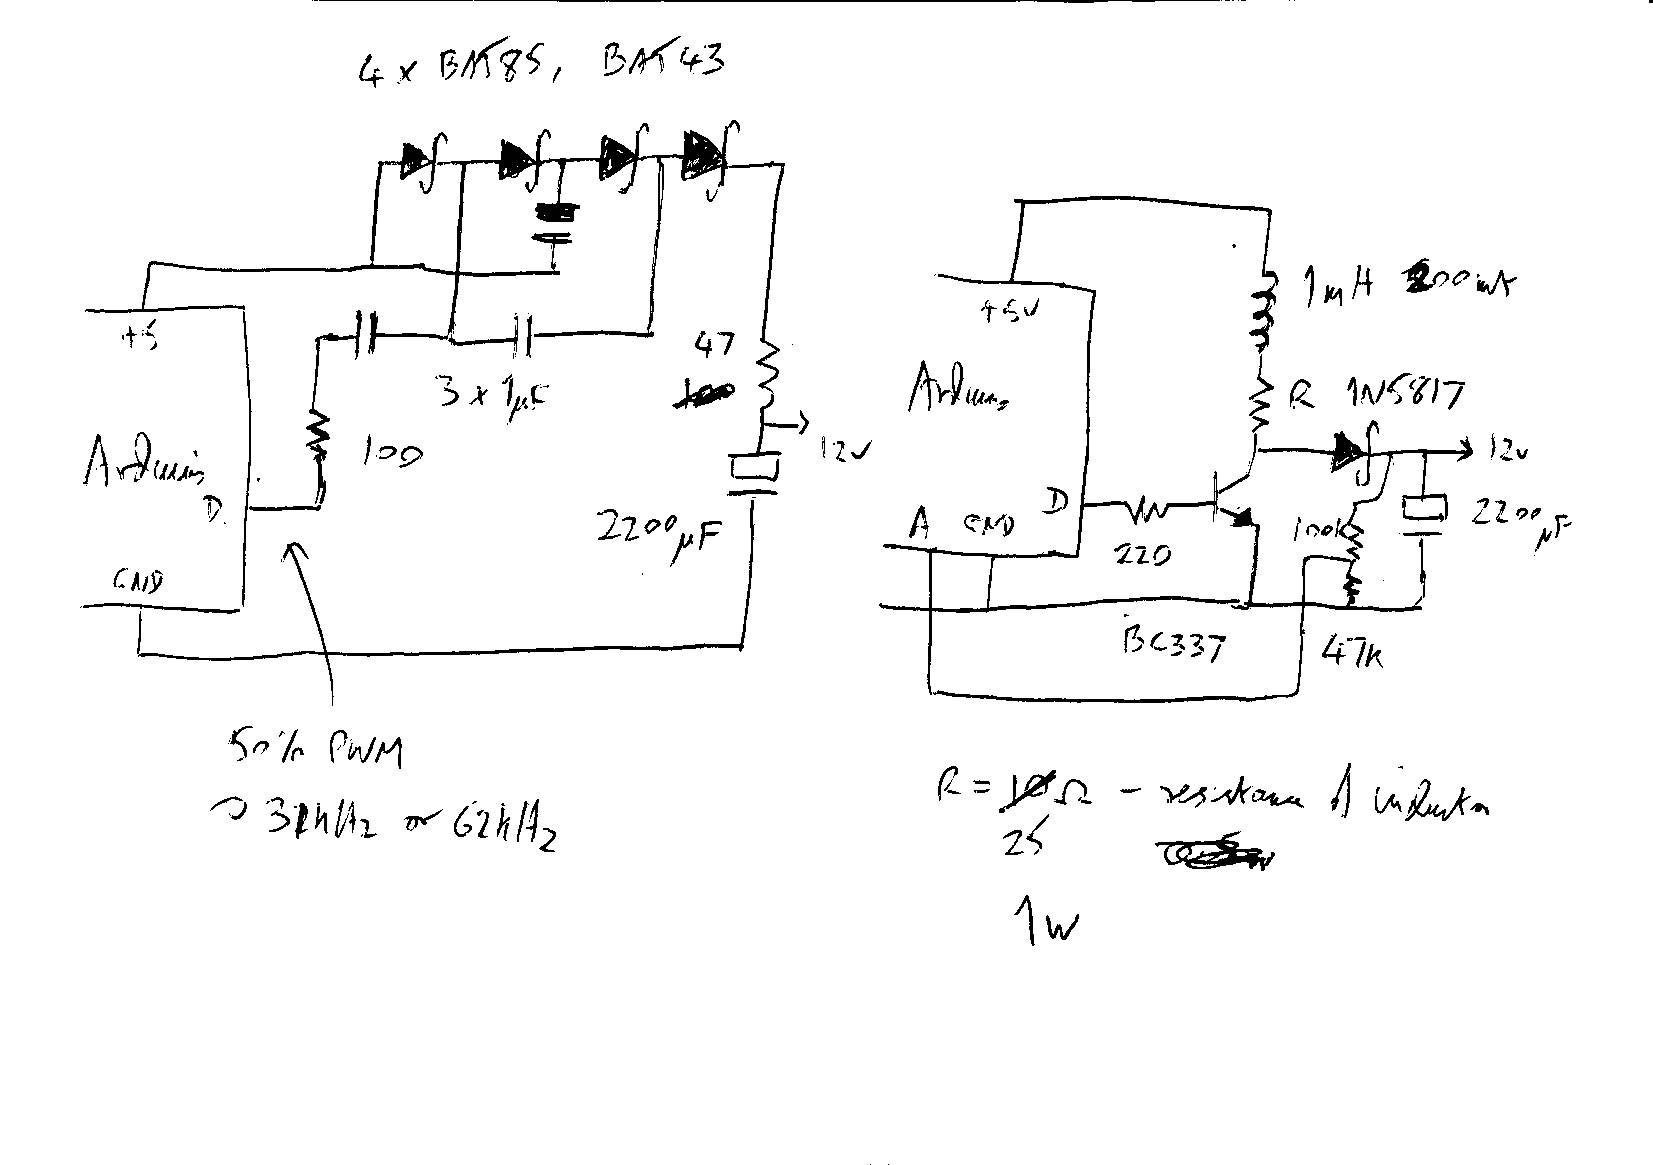 4 x BAT85, BAT43
+5
100
3 x 1µF
47
12V
2200µF
Arduino
D
GND
50% PWM
31kHz or 62kHz
+5V
1mH 200mA
R 1N5817
12V
Arduino
D
A GND
220
100k
2200µF
BC337
47K
R = 10Ω - resistance of inductor
25
1W